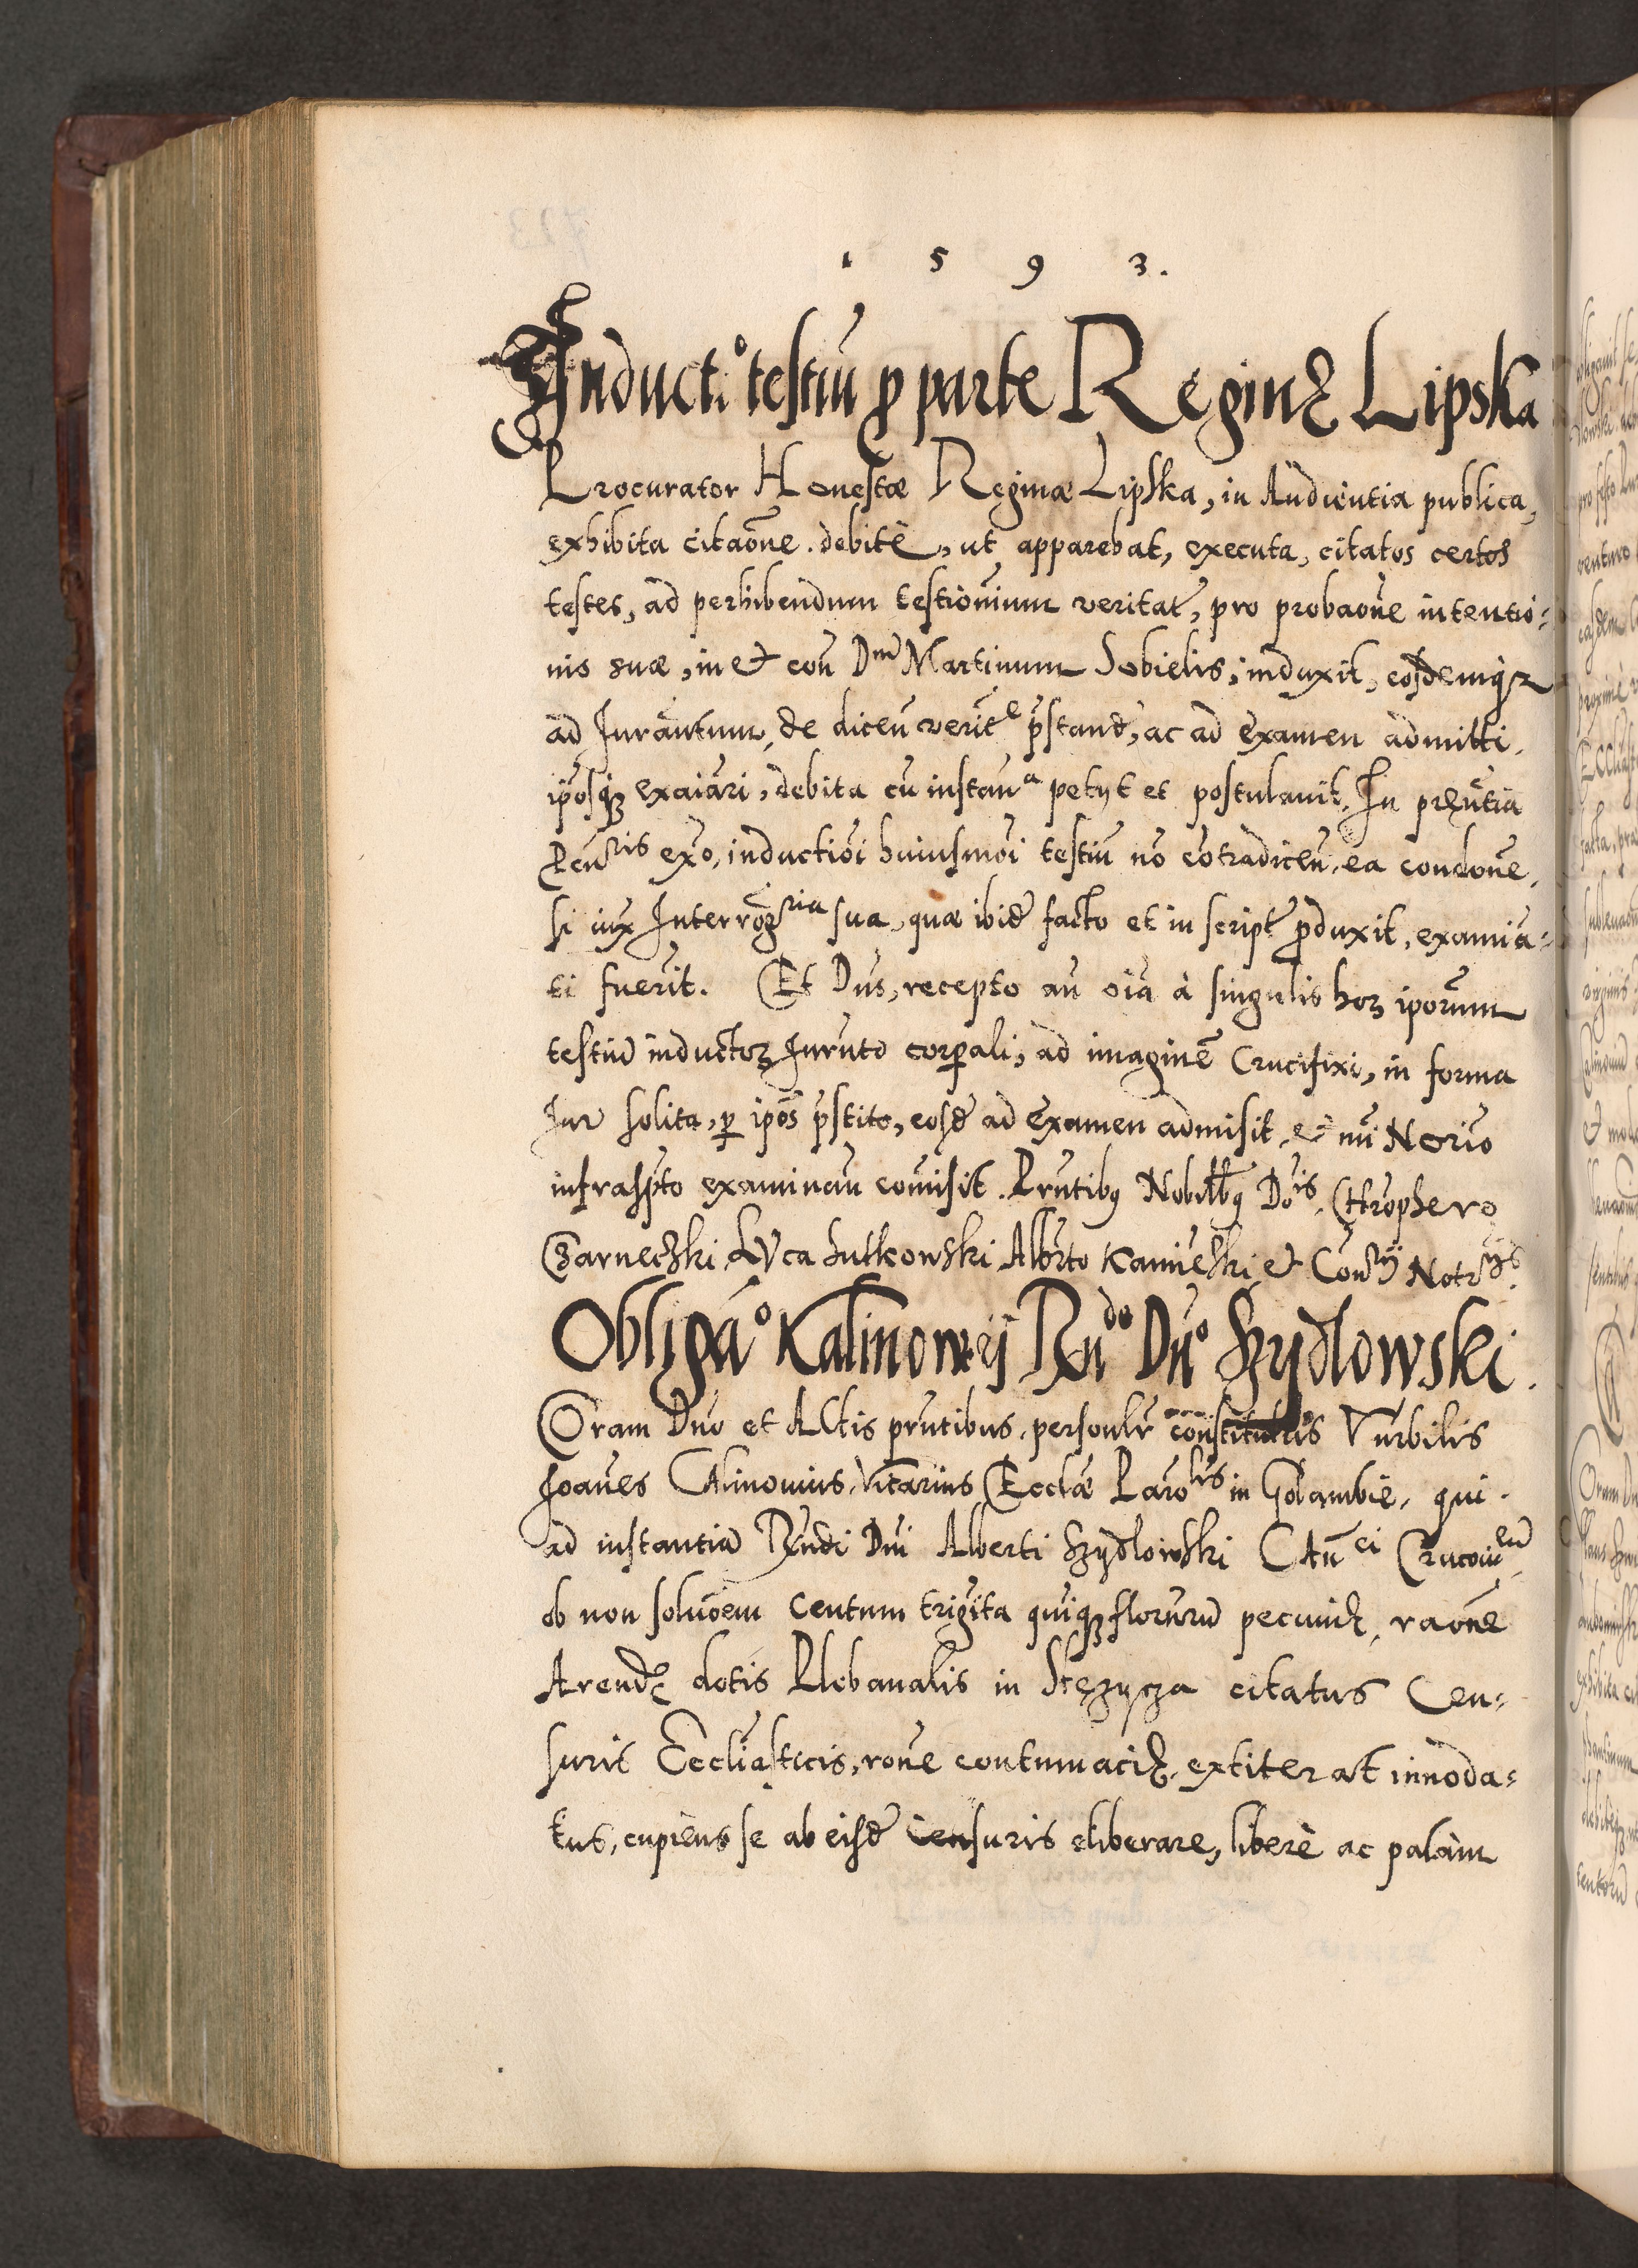 1 5 9 3.
Inducti͠o testiū ꝓ parte Reginę Lipska
Procurator Honestæ Reginæ Lipska, in Audientia publica,
exhibita citaōne debitè, ut apparebat, executa, citatos certos
testes, ad perhibendum testiōnium veritat, pro probaōne intentio=
nis suæ, in et con̄ Dnū Martinum Sobielis, induxit, eosdemqꝫ
ad Jurāntum, de dicen̄ verit̄e p̄stand, ac ad examen admitti,
ip̄osqꝫ exaīari, debita cū instan̄a petÿt et postulauit, In pręn̄tia
Pcūris ex͠o, inductiōi huiusmōi testiū nō cōtradicen̄, ea cond͠one,
si iux Interrog̃ria sua, quæ ibid facto et in script ꝓduxit, examīa=
ti fuerīt. Et Dn̄s, recepto an̄ oīa à singulis hoꝝ ip̄orum
testiū inductoꝝ Jurn̄to corꝑali, ad imaginē Crucifixi, in forma
Jur solita, ꝑ ip̄os p̄stito, eosd ad examen admisit, et mī No͠rio
infrasp̄to examinan̄ com̄isit. Prn̄tibꝫ Nobilibꝫ Dn̄is Chrophero
Czarneczki Luca Sulkowski Alb̄rto Kamieński et Con̄ry Notrijs.
Obliga͠o Kalinowij Rn̄do Dn̄o Szydlowski.
Coram Dn̄o et Actis prn̄tibus, person̄lr constitutus Vn̄rbilis
Joan̄es Calinouius, Vicarius Eccl̄æ Paro͠lis in Golambie, qui
ad instantiā Rn̄di Dn̄i Alberti Szydlowski Can̄ci Cracouien̄,
ob non soluōem Centum trigīta quīqꝫ florn̄rū pecunię, raōne
Arendę dotis Plebanalis in Stęzycza citatus Cen=
suris Eccliāsticis, rōne contumacię, extiterat innoda=
tus, cupiens se ab eisd censuris eliberare, liberè ac palàm